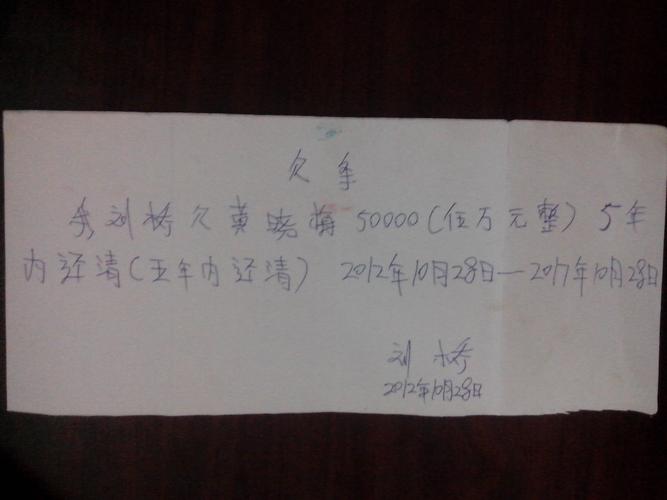 欠条
我刘桥欠黄晓梅50000(伍万元整)5年
内还清(五年内还清) 2012年10月28日—2017年10月28日
刘桥
2012年10月28日